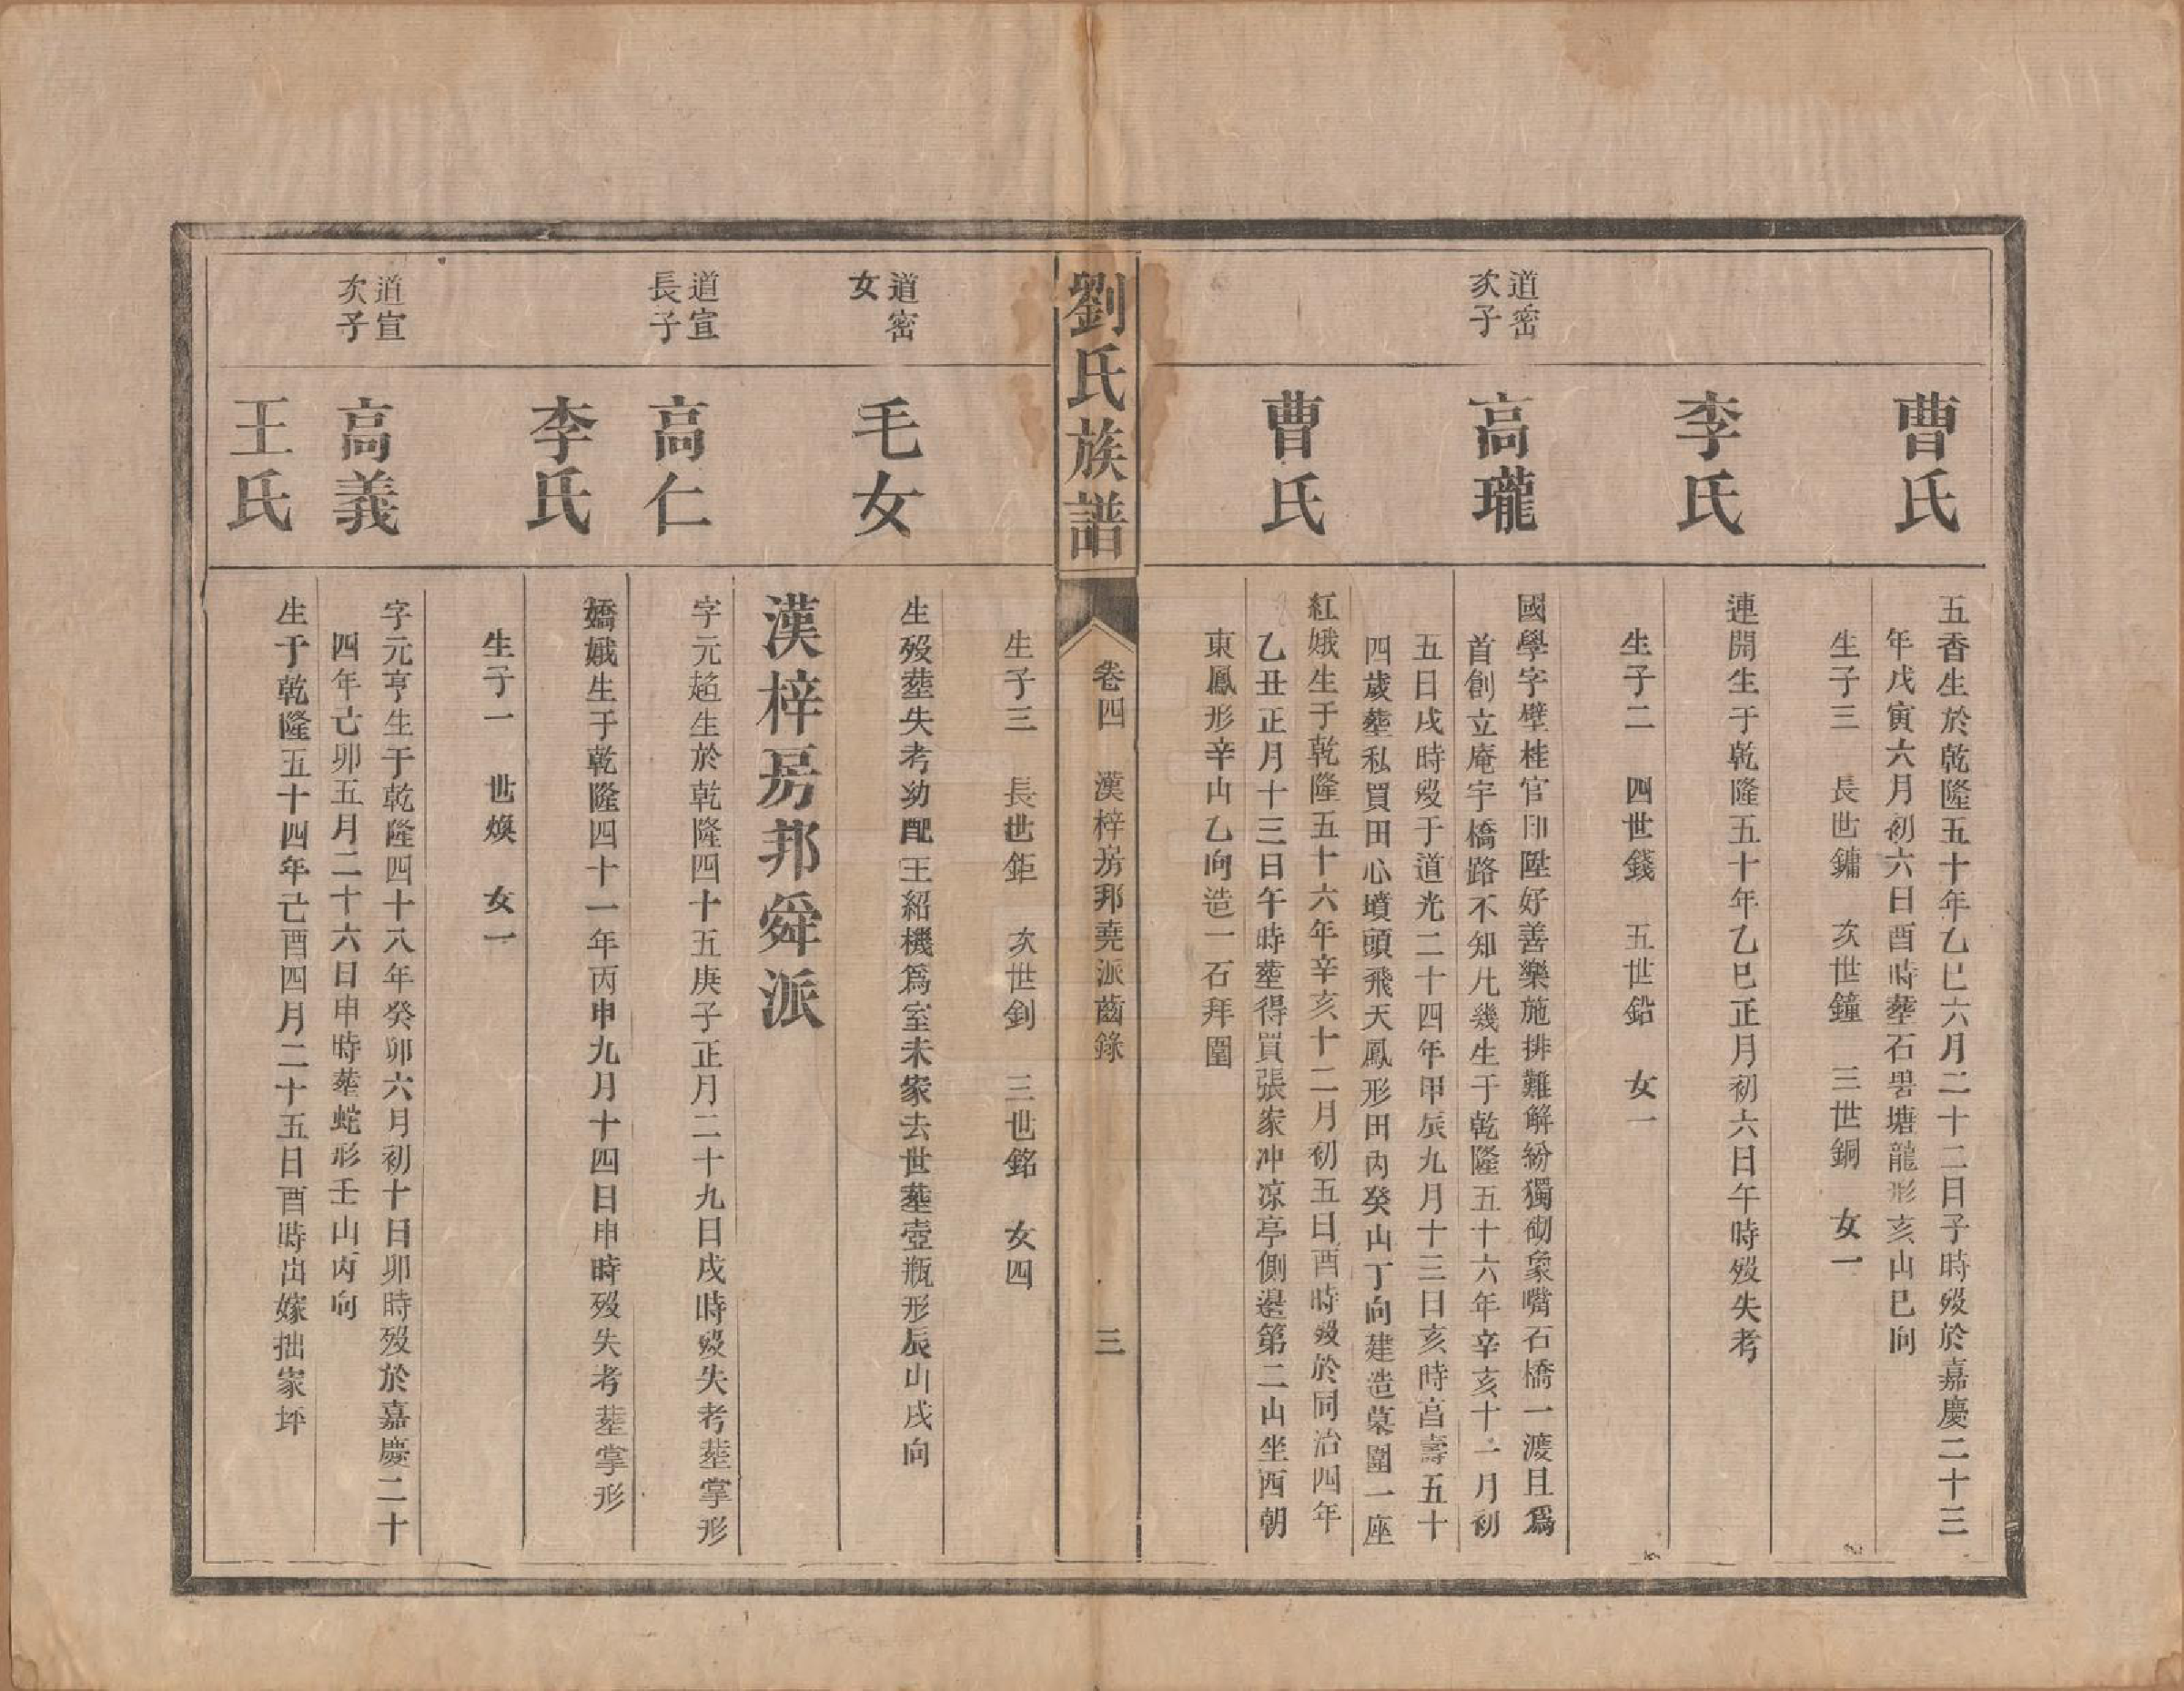 曹氏
五香生於乾隆五十年乙巳六月二十二日子時歿於嘉慶二十三
年戊寅六月初六日酉時塟石碞塘龍形亥山巳向
生子三　長世鏞　次世鐘　三世銅　女一
李氏
連開生于乾隆五十年乙巳正月初六日午時歿失考
生子二　四世錢　五世鉛　女一
道密
次子
高瓏
國學字壁桂官印陞好善樂施排難解紛獨砌象嘴石橋一渡且爲
首創立庵宇橋路不知凢幾生于乾隆五十六年辛亥十一月初
五日戌時歿于道光二十四年甲辰九月十三日亥時享壽五十
四歲塟私買田心墳頭飛天鳳形田內癸山丁向建造墓圍一座
曹氏
紅娥生于乾隆五十六年辛亥十二月初五日酉時歿於同治四年
乙丑正月十三日午時塟得買張家冲凉亭側邊第二山坐西朝
東鳳形辛山乙向造一石拜圍
劉氏族譜
卷四　漢梓房邦堯派齒錄
三
生子三　長世鉅　次世釗　三世銘　女四
道密
女
毛女
生歿塟失考幼配王紹機爲室未家去世塟壺瓶形辰山戌向
漢梓房邦舜派
道宣
長子
高仁
字元趋生於乾隆四十五庚子正月二十九日戌時歿失考塟掌形
李氏
嬌娥生于乾隆四十一年丙申九月十四日申時歿失考塟掌形
生子一　世煥　女一
道宣
次子
高義
字元亨生于乾隆四十八年癸卯六月初十日卯時歿於嘉慶二十
四年己卯五月二十六日申時塟蛇形壬山丙向
王氏
生于乾隆五十四年己酉四月二十五日酉時出嫁拙家坪